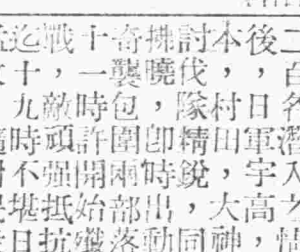 二百名潛入
後，日軍宇高，
本，村田，大神
討伐隊精銳，同
拂曉，即時出動
奇襲包圍兩部落
十一時許開始殲
戰，敵頑强抵抗
迄十九時不堪日